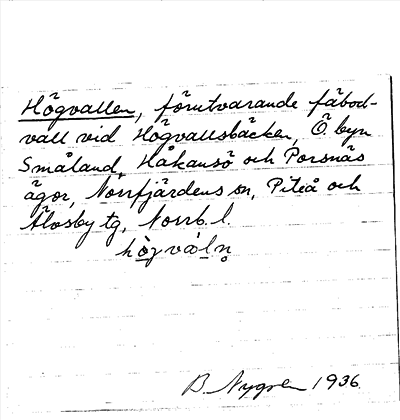 Högvallen, förutvarande fäbod-
vall vid Högvallsbäcken, Ö byn
Småland, Håkansö och Porsnäs
ägor, Norrfjärdens sn, Piteå och
Älvsby tg, Norrb. l.
hògvàln̥
B. Nygren 1936